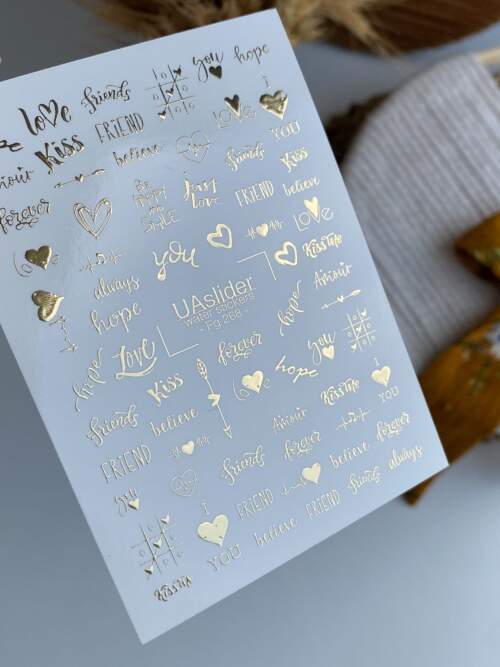 you hope
love friends
I
Kiss FRIEND LOVE
YOU
Amour believe friends Kiss
forever BE HAPPY and SMILE Just Love FRIEND believe
LOVE
always you Kiss Me
hope UAslider Amour
water stickers
- Fg 268 -
hope
hope LOVE forever you
Kiss hope I
love Kiss Me YOU
friends believe Amour
FRIEND friends forever believe forever
you I FRIEND friends always
YOU believe FRIEND
Kiss Me